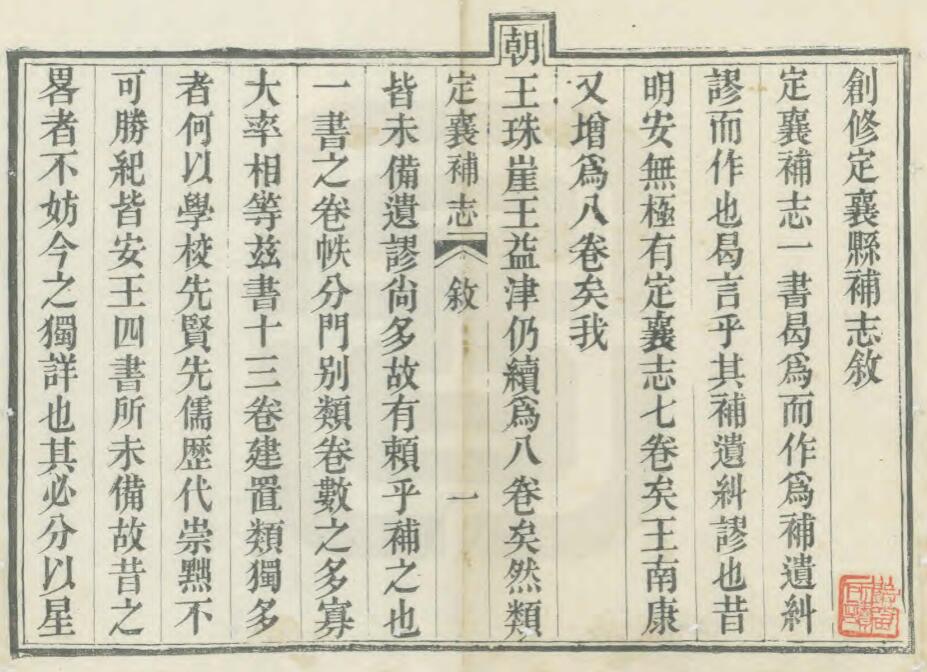 創修定襄縣補志敘
定襄補志一書曷爲而作爲補遺糾
謬而作也曷言乎其補遺糾謬也昔
明安無極有定襄志七卷矣王南康
又增爲八卷矣我
朝
王珠崖王益津仍續爲八卷矣然類
定襄補志 敘 一
皆未備遺謬尚多故有賴乎補之也
一書之卷帙分門别類卷數之多寡
大率相等兹書十三卷建置類獨多
者何以學校先賢先儒歷代崇黜不
可勝紀皆安王四書所未備故昔之
畧者不妨今之獨詳也其必分以星